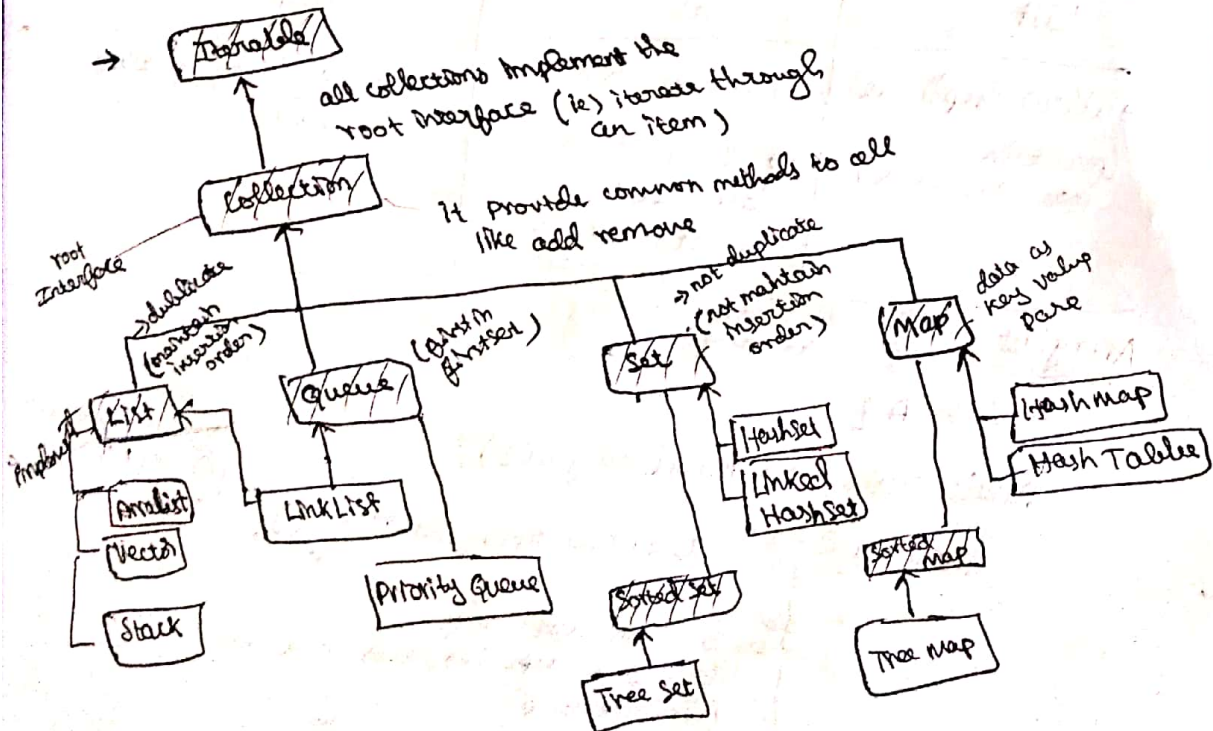 → Iterable
all collections implement the
root interface (ie) iterate through
an item)
Collection
it provide common methods to all
like add remove
root
Interface
→ dublicate
(maintain
insertion
order)
(first in
first
→ not duplicate
(not maintain
insertion
order)
data as
key value
pare
List
Queue
Set
Map
HashMap
Hash Table
HashSet
Linked
HashSet
LinkList
Arralist
Vector
Stack
Priority Queue
Sorted Set
Sorted
Map
Tree Set
Tree Map